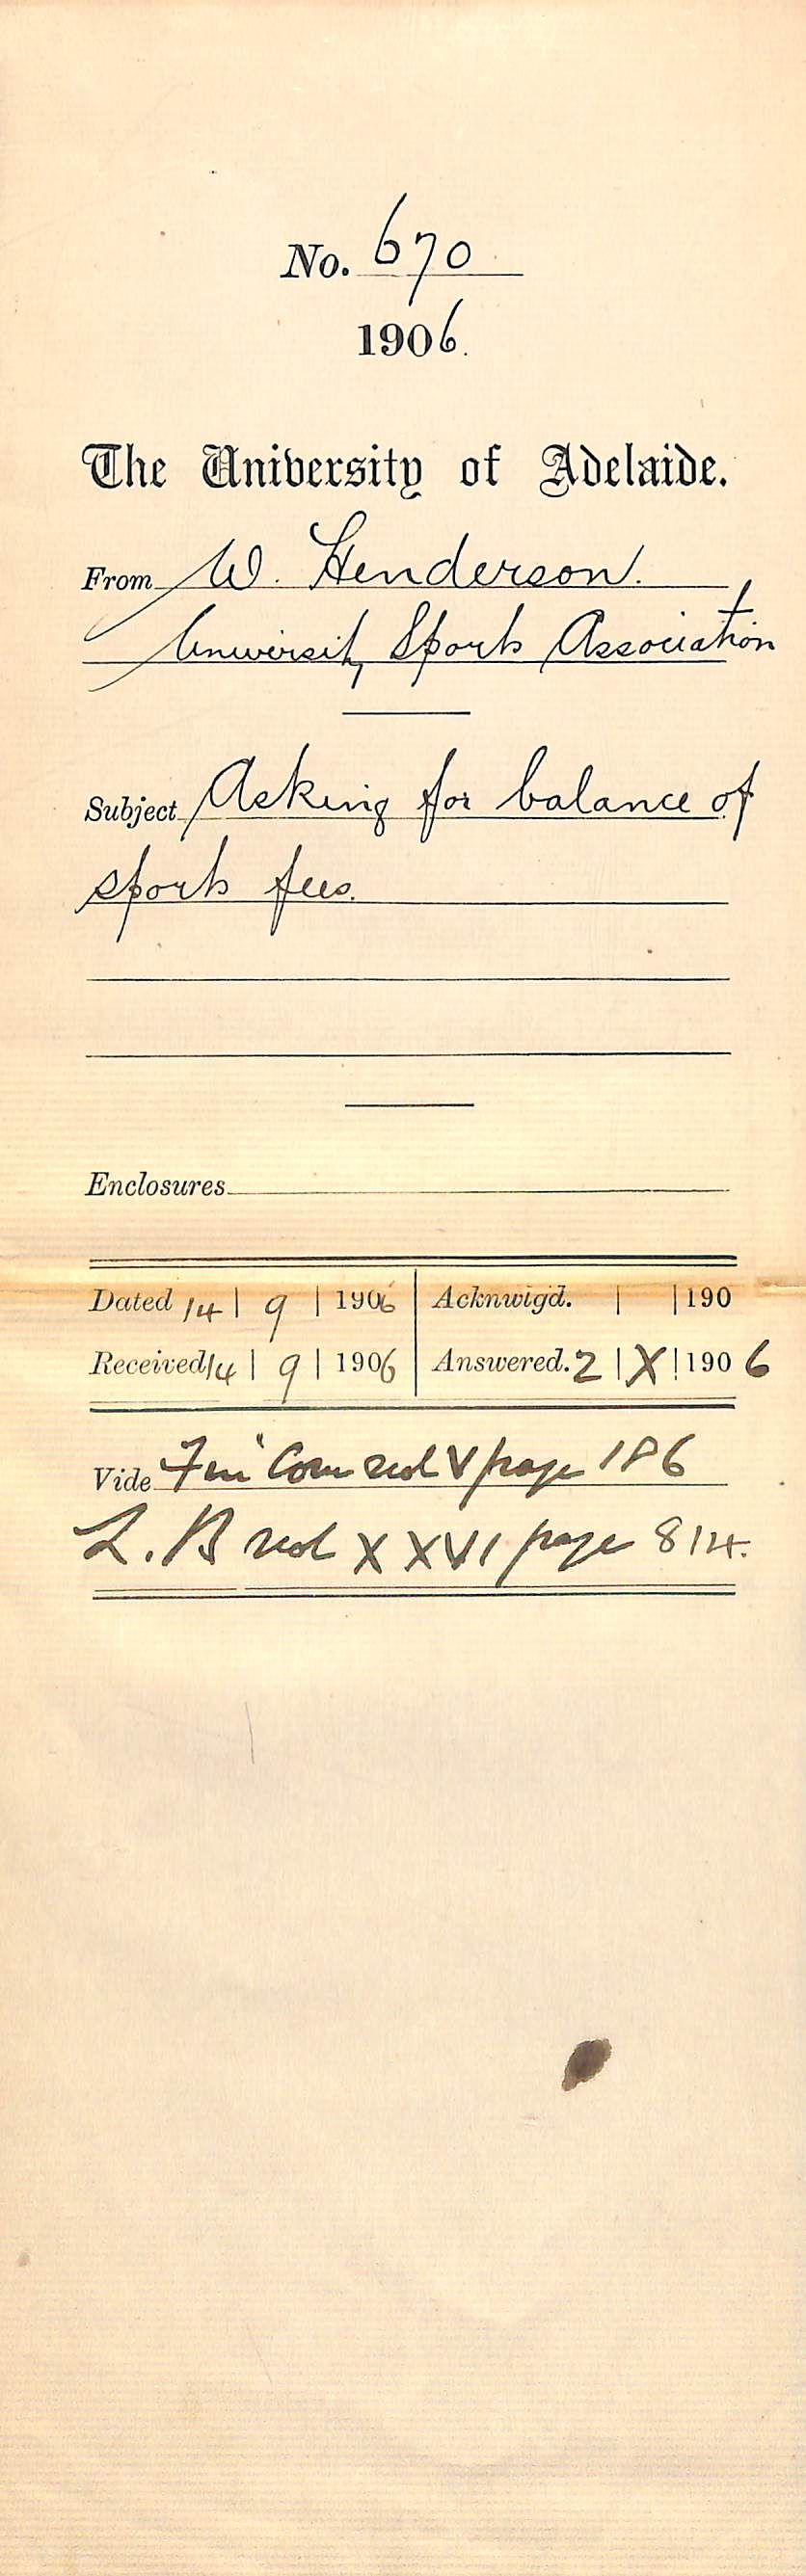 No. 670
1906.
The University of Adelaide.
From W. Henderson.
University Sports Association
Subject Asking for balance of
sports fees.
Enclosures
Dated 14 | 9 | 1906 Acknwlgd. | | 190
Received 14 | 9 | 1906 Answered. 2 | X | 1906
Vide Fin Com vol V page 186
L. B vol XXVI page 814.